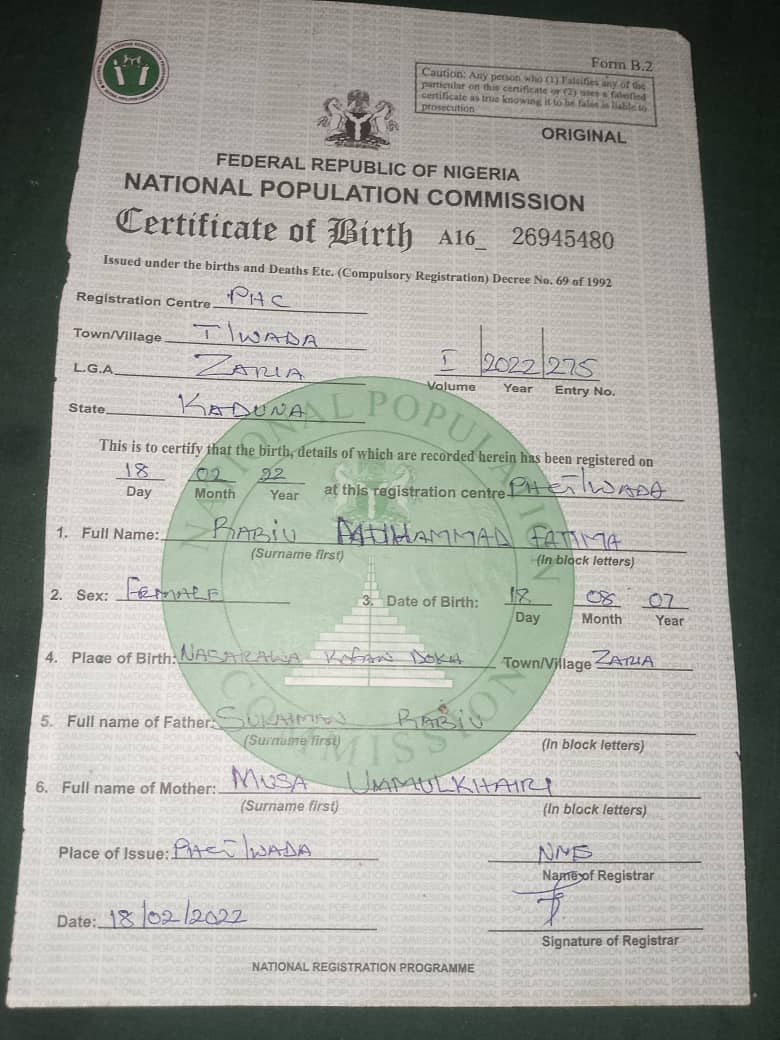 Form B.2
Caution: Any person who (1) Falsifies any of the
particular on this certificate or (2) uses a falsified
certificate as true knowing it to be false is liable to
prosecution
ORIGINAL
FEDERAL REPUBLIC OF NIGERIA
NATIONAL POPULATION COMMISSION
Certificate of Birth A16_ 26945480
Issued under the births and Deaths Etc. (Compulsory Registration) Decree No. 69 of 1992
Registration Centre PHC
Town/Village T/WADA
L.G.A ZARIA
I 2022 275
Volume Year Entry No.
State KADUNA
This is to certify that the birth, details of which are recorded herein has been registered on
18 02 22 at this registration centre
Day Month Year
1. Full Name: RABIU MUHAMMAD FATIMA
(Surname first) (In block letters)
2. Sex: FEMALE 3. Date of Birth: 18 08 07
Day Month Year
4. Place of Birth: NASARAWA DOKA Town/Village ZARIA
5. Full name of Father: RABIU
(Surname first) (In block letters)
6. Full name of Mother: MUSA UMMULKHAIRI
(Surname first) (In block letters)
Place of Issue:
Name of Registrar
Date: 18/02/2022
Signature of Registrar
NATIONAL REGISTRATION PROGRAMME
NATIONAL POPULATION COMMISSION